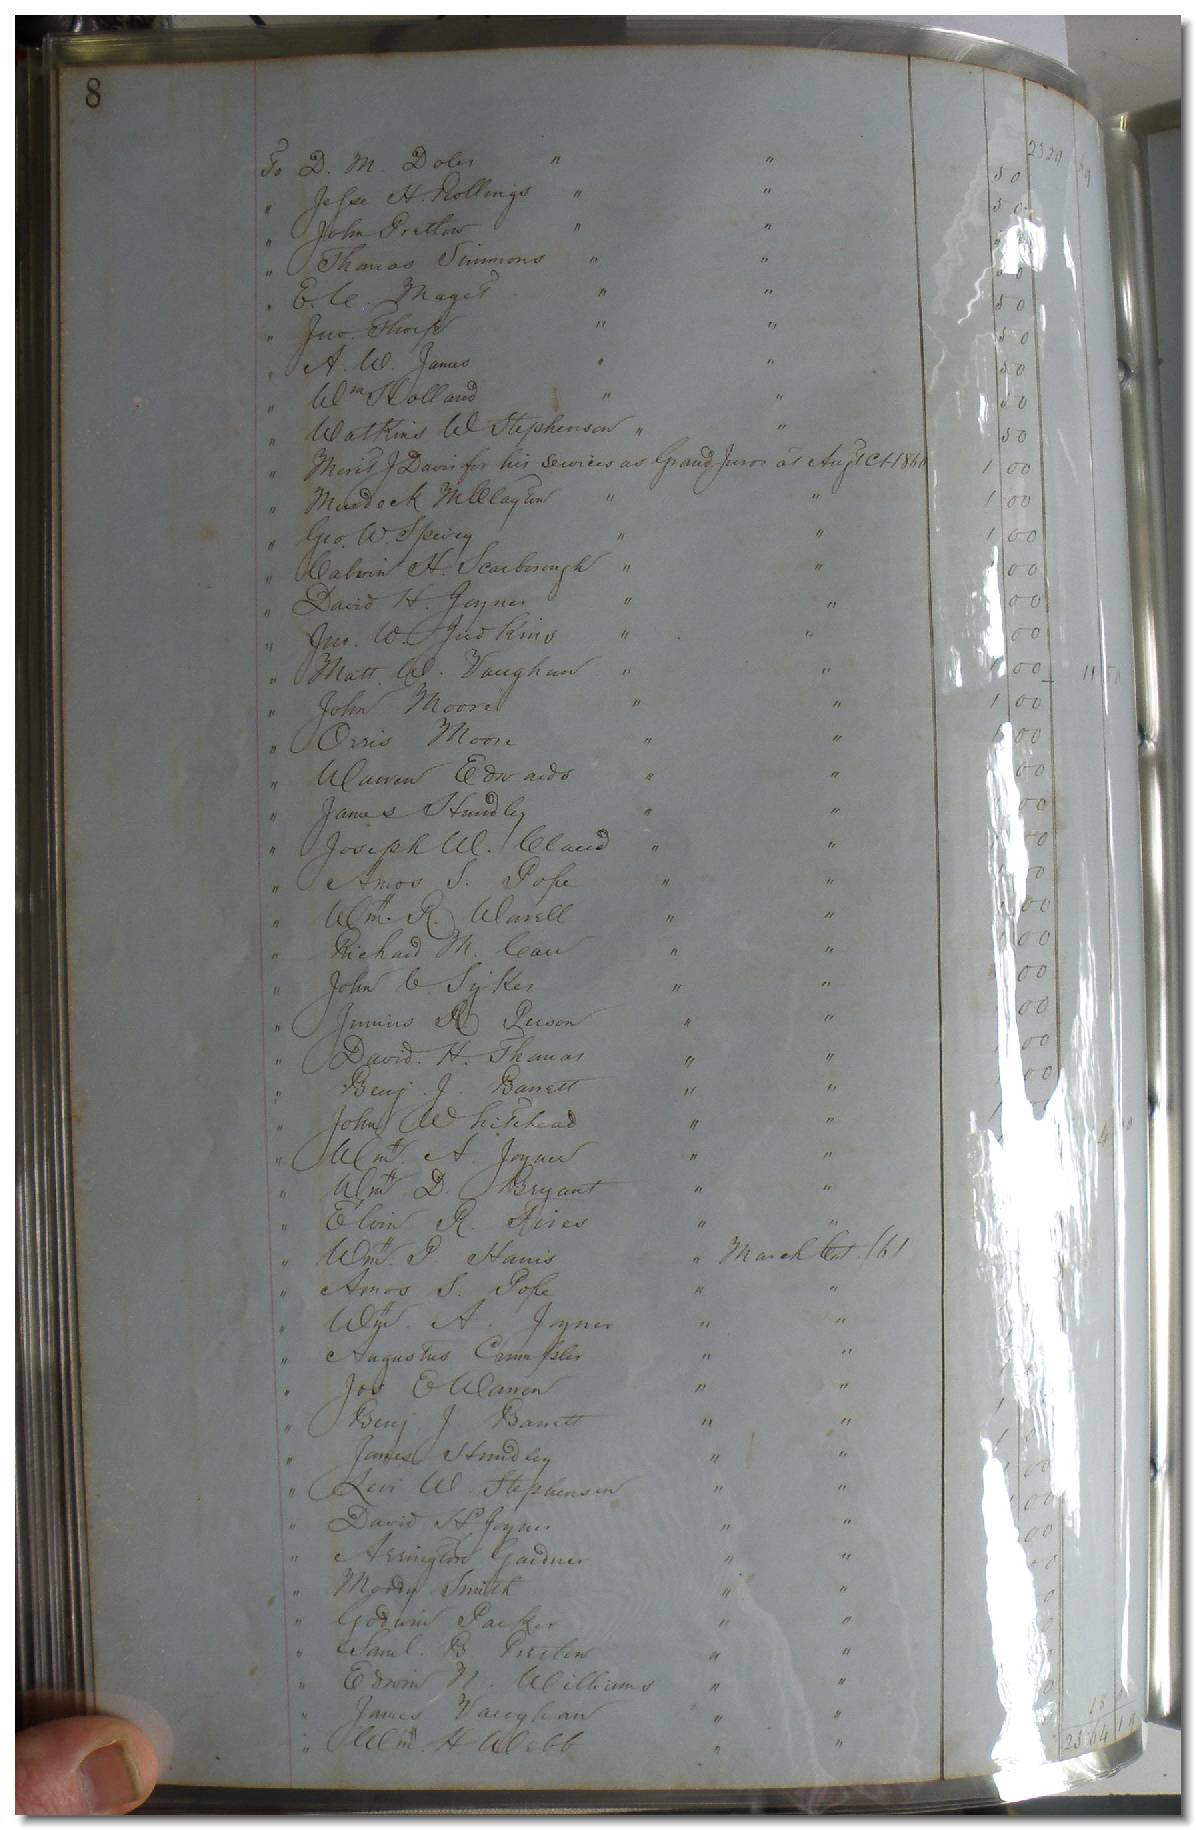 8
2329 
To D. M. Doles " " 50
" Jesse H. Rollings " " 50
" John Pretlow " "
" Thomas Simmons " "
" E. C. Maget " " 50
" Jno. Thorp " " 50
" A. W. James " " 50
" Wm Holland " " 50
" Watkins W Stephenson " " 50
" Merit J Davis for his services as Grand Juror at Augt Ct 1860 1 00
" Murdock McClayton " " 1 00
" Geo. W. Spivey " " 1 00
" Calvin H. Scarborough " " 00
" David H. Joyner " " 00
" Jno. W. Judkins " " 00
" Matt. W. Vaughan " " 1 00
" John Moore " " 1 00
" Orris Moore " " 00
" Warren Edwards " " 00
" James Hundley " " 00
" Joseph W. Claud " " 00
" Amos S. Pope " "
" Wm. R. Warell " " 00
" Richard M. Carr " " 00
" John C. Sykes " " 00
" Junius R. Person " " 00
" David. H. Thomas " " 00
" Benj. J. Barrett " " 00
" John Whitehead " "
" Wm. A. Joyner " "
" Wm. D. Bryant " "
" Elvin R. " "
" Wm. P. Harris " March Court /61
" Amos S. Pope " "
" Wm. A. Joyner " "
" Augustus Crumpler " "
" Jos E Warren " "
" Benj J Barrett " "
" James Hundley " "
" Levi W. Stephenson " " 00
" David H Joyner " " 00
" Arrington Gardner " " 00
" Moody Smith " "
" Godwin Parker " "
" Saml. B Pretlow " "
" Edwin N. Williams " "
" James Vaughan " "
" Wm H Webb " " 2364